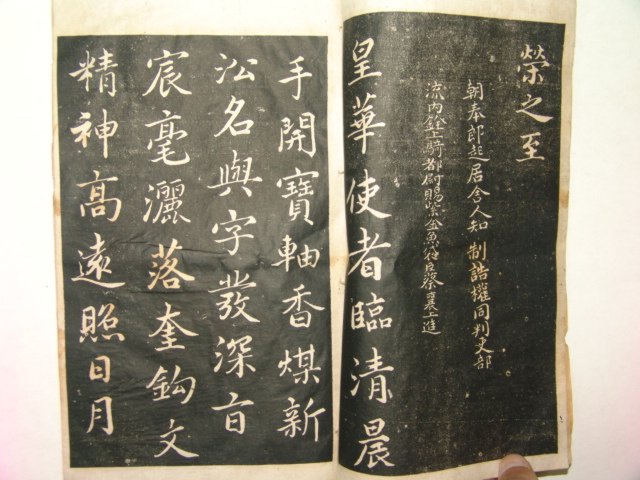 榮之至
朝奉郎起居舍人知 制誥權同判吏部
流内銓上騎都尉賜紫金魚袋臣蔡襄上進
皇華使者臨清晨
手開寶軸香煤新
沄名與字發深旨
宸毫灑落奎鈎文
精神高遠照日月